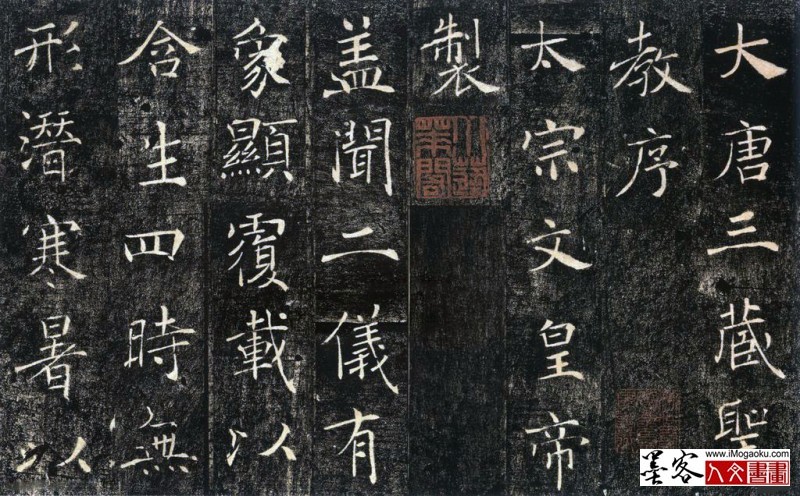 大唐三藏聖
教序
太宗文皇帝
製
蓋聞二儀有
象顯覆載以
含生四時無
形潛寒暑以
墨客
www.iMogaoku.com
人文書畫